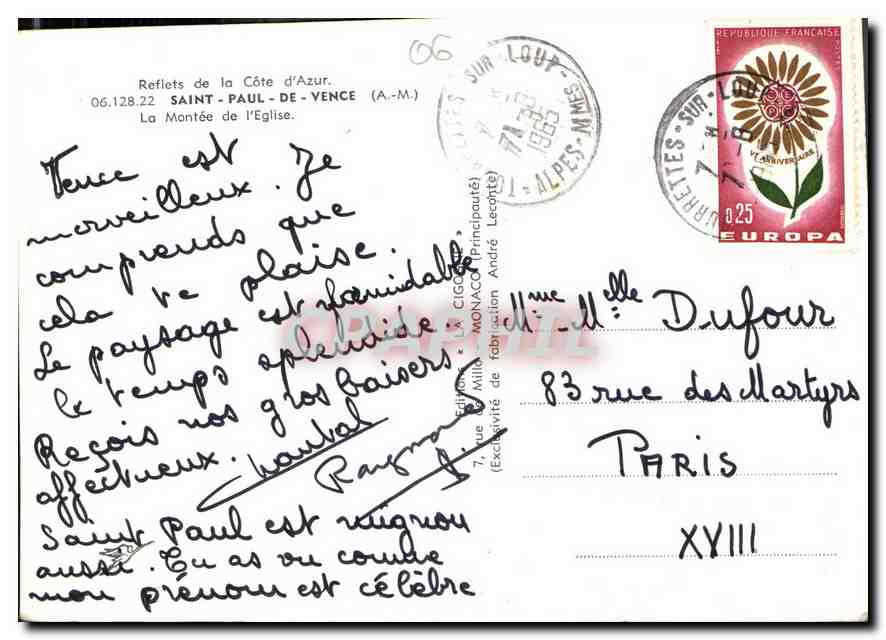 06
Reflets de la Côte d'Azur.
06.128.22 SAINT - PAUL - DE - VENCE (A.-M.)
La Montée de l'Eglise.
Vence est Je
merveilleux. 
comprends que
cela te plaise.
Le paysage est formidable
le temps splendide.
Reçois nos gros baisers
affectueux. Chantal
Raymonde
Saint Paul est mignon
aussi. Tu as vu comme
mon prénom est célèbre
SUR - LOUP
ALPES - MMES
1965
Editions "LA CIGOGNE"
7, rue de Millo MONACO (Principauté)
(Exclusivité de fabrication André Leconte)
CPAPHIL
TOURRETTES - SUR - LOUP
REPUBLIQUE FRANÇAISE
VE ANNIVERSAIRE
0,25
EUROPA
Mme - Melle Dufour
83 rue des Martyrs
PARIS
XVIII